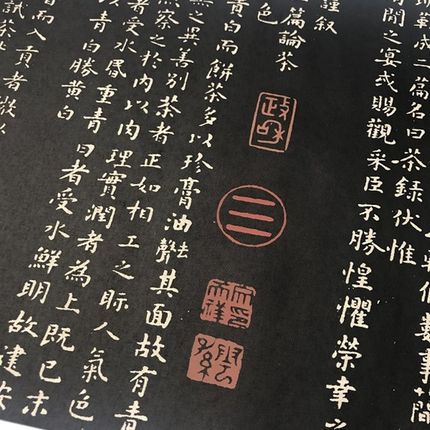 條數事簡
成二篇名曰茶錄伏惟
閒之宴或賜觀采臣不勝惶懼榮幸之
謹叙
篇論茶
色
貴白而餅茶多以珍膏油其面故有青
黑之異善別茶者正如相工之眎人氣色
然察之於內以肉理實潤者為上既已末
者受水昏重青白者受水鮮明故建安
以青白勝黃白
而入貢者微以
試茶
政和
三